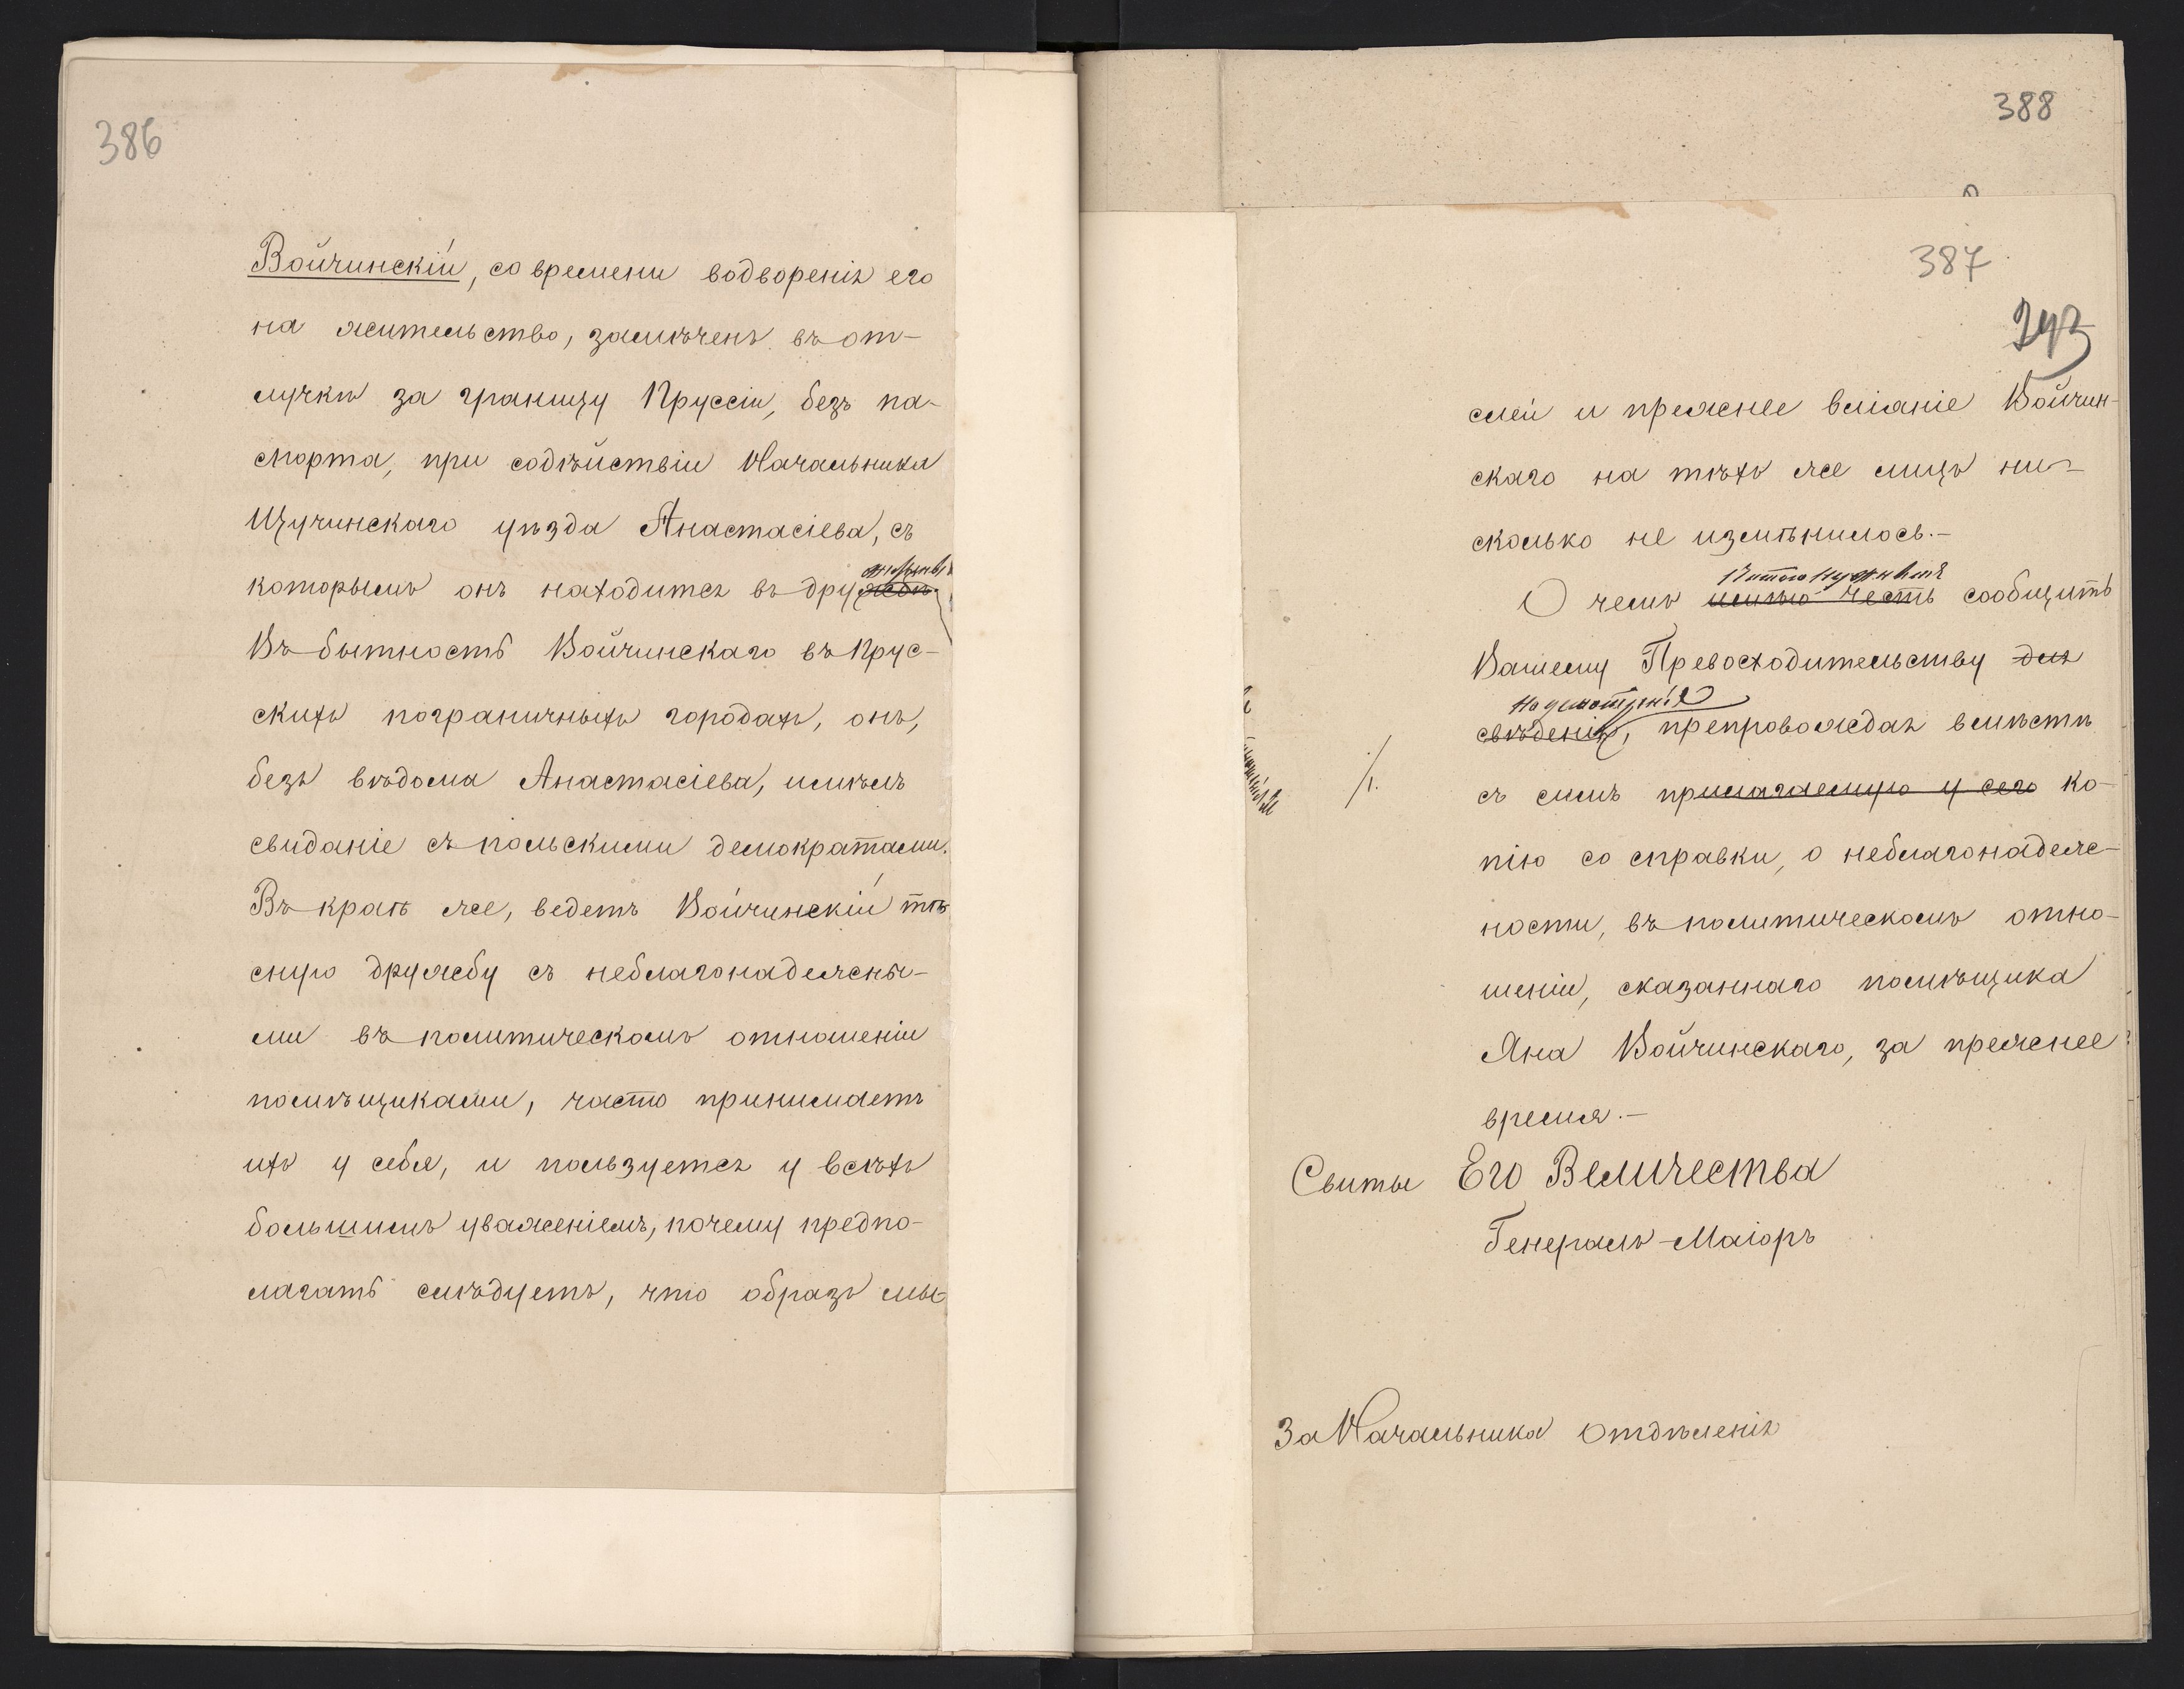 386
Войчинскій, со времени водворенія его
на жительство, замѣченъ въ от-
лучкѣ за границу Пруссіи, безъ па-
спорта, при содѣйствіи Начальника
Щучинскаго уѣзда Анастасіева, съ
которымъ онъ находится въ дружбѣ.
Въ бытность Войчинскаго въ Прус-
скихъ пограничныхъ городахъ, онъ,
безъ вѣдома Анастасіева, имѣлъ
свиданіе съ польскими демократами.
Въ краѣ же, ведетъ Войчинскій тѣ-
сную дружбу съ неблагонадежны-
ми въ политическомъ отношеніи
помѣщиками, часто принимаетъ
ихъ у себя, и пользуется у всѣхъ
большимъ уваженіемъ, почему предпо-
лагать слѣдуетъ, что образъ мы-
388
387
243
слей и прежнее вліяніе Войчин-
скаго на тѣхъ же лицъ ни-
сколько не измѣнилось.-
О чемъ имѣю честь сообщить
Вашему Превосходительству для
на усмотрѣніе
свѣденія, препровождая вмѣстѣ
съ симъ прилагаемую у сего ко-
пію со справки, о неблагонадеж-
ности, въ политическомъ отно-
шеніи, сказаннаго помѣщика
Яна Войчинскаго, за прежнее
время.-
Свиты Его Величества
Генералъ-Маіоръ
За Начальника Отдѣленія